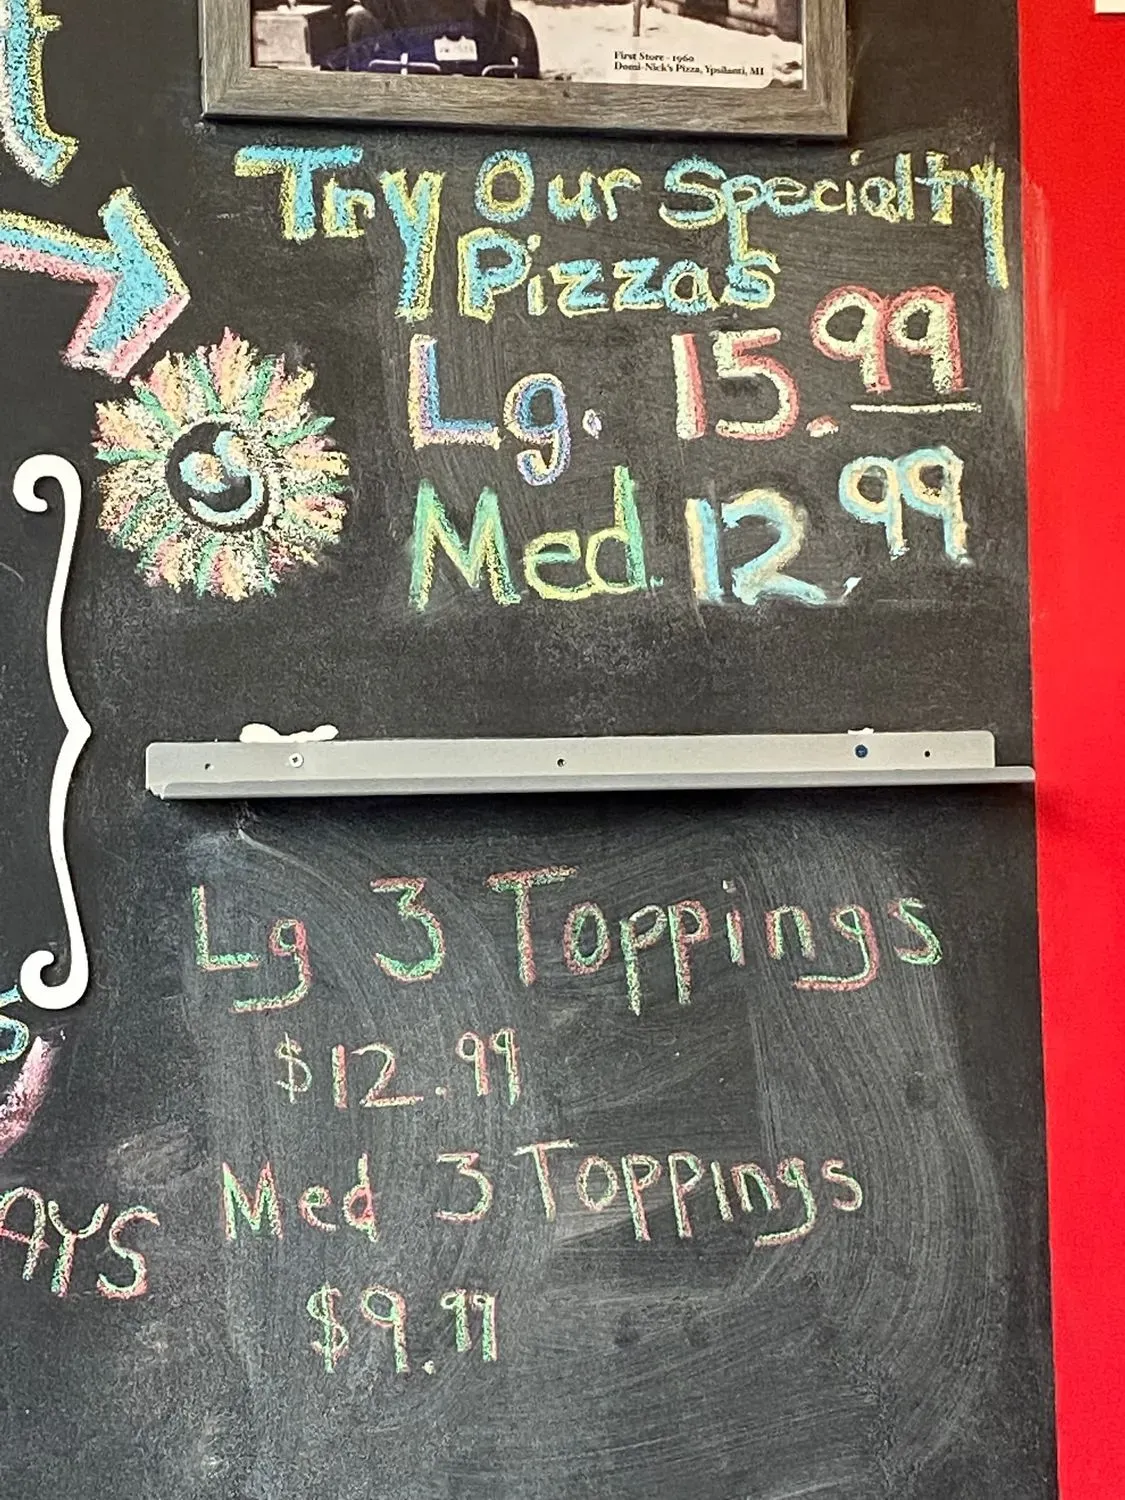 First Store - 1960
Domi-Nick's Pizza, Ypsilanti, MI
Try Our Specialty
Pizzas
Lg. 15.99
Med. 12.99
Lg 3 Toppings
$12.99
Med 3 Toppings
$9.99